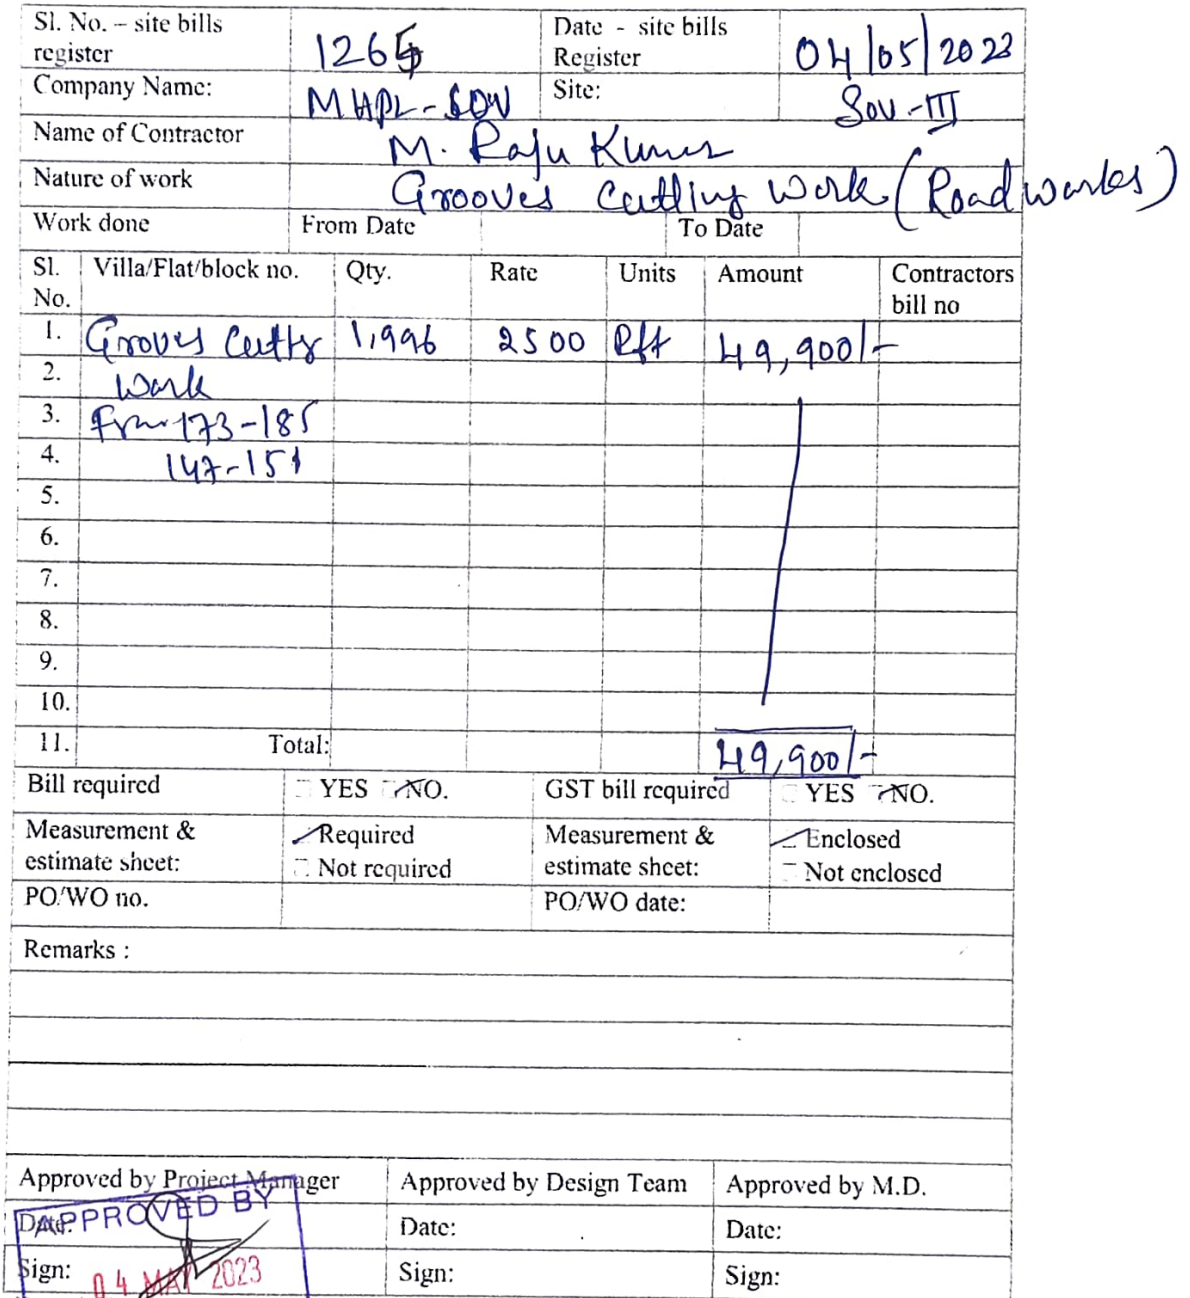 Sl. No. – site bills register 1265 Date - site bills Register 04/05/2023
Company Name: MHPL-SOV Site: Sov-III
Name of Contractor M. Raju Kumar
Nature of work Grooves cutting work (Road works)
Work done From Date To Date
Sl. No. Villa/Flat/block no. Qty. Rate Units Amount Contractors bill no
1. Grooves Cutting 1,996 2500 Rft 49,900/-
2. Work
3. From 173-185
4. 147-151
5.
6.
7.
8.
9.
10.
11. Total: 49,900/-
Bill required YES NO. GST bill required YES NO.
Measurement & estimate sheet: Required Not required Measurement & estimate sheet: Enclosed Not enclosed
PO/WO no. PO/WO date:
Remarks :
Approved by Project Manager Approved by Design Team Approved by M.D.
Date: APPROVED BY Date: Date:
Sign: 04 MAY 2023 Sign: Sign: